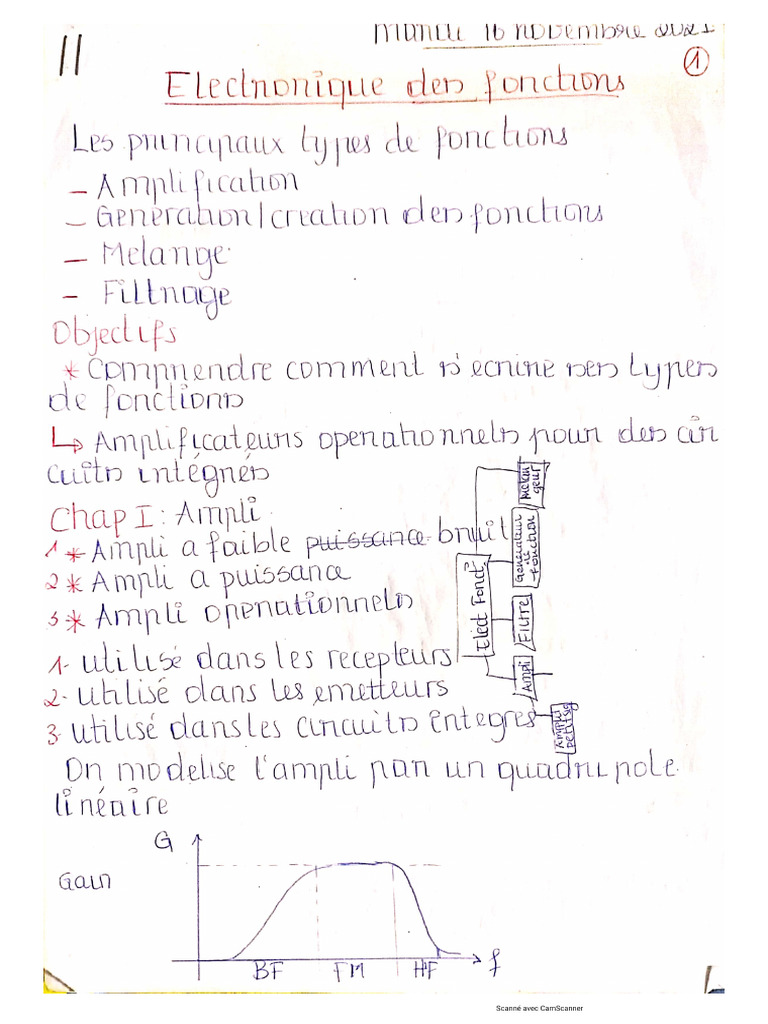 Mardi 16 novembre 2021
11
1
Electronique des fonctions
Les principaux types de fonctions
- Amplification
- Generation/creation des fonctions
- Melange
- Filtrage
Objectifs
* Comprendre comment s'ecrire ses types
de fonctions
↳ Amplificateurs operationnels pour des cir
cuits intégrés
Chap I : Ampli
1 * Ampli a faible puissance bruit
2 * Ampli a puissance
3 * Ampli operationnels
Elect Fonct°
Melan
geur
Generateur
de
fonction
Filtre
Ampli
Ampli
petit sig
1- utilisé dans les recepteurs
2- utilisé dans les emetteurs
3- utilisé dans les circuits integres
On modelise l'ampli par un quadripole
linéaire
G
Gain
BF FM HF f
Scanné avec CamScanner